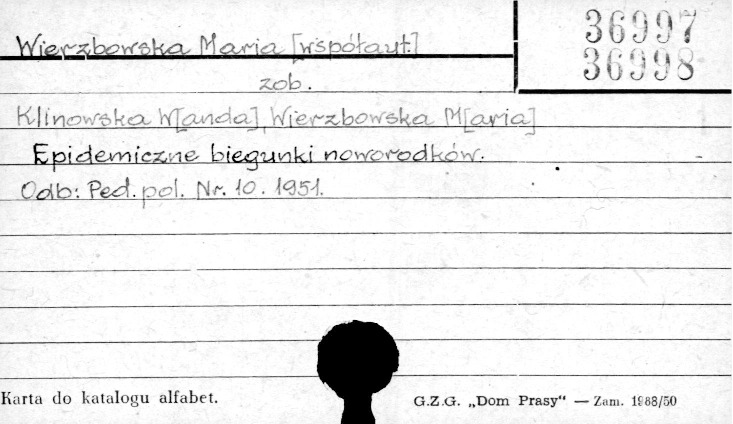 Wierzbowska Maria [współaut.]
36997
36998
zob.
Klinowska W[anda], Wierzbowska M[aria]
Epidemiczne biegunki noworodków.
Odb: Ped. pol. Nr. 10. 1951.
Karta do katalogu alfabet.
G.Z.G. „Dom Prasy“ — Zam. 1988/50